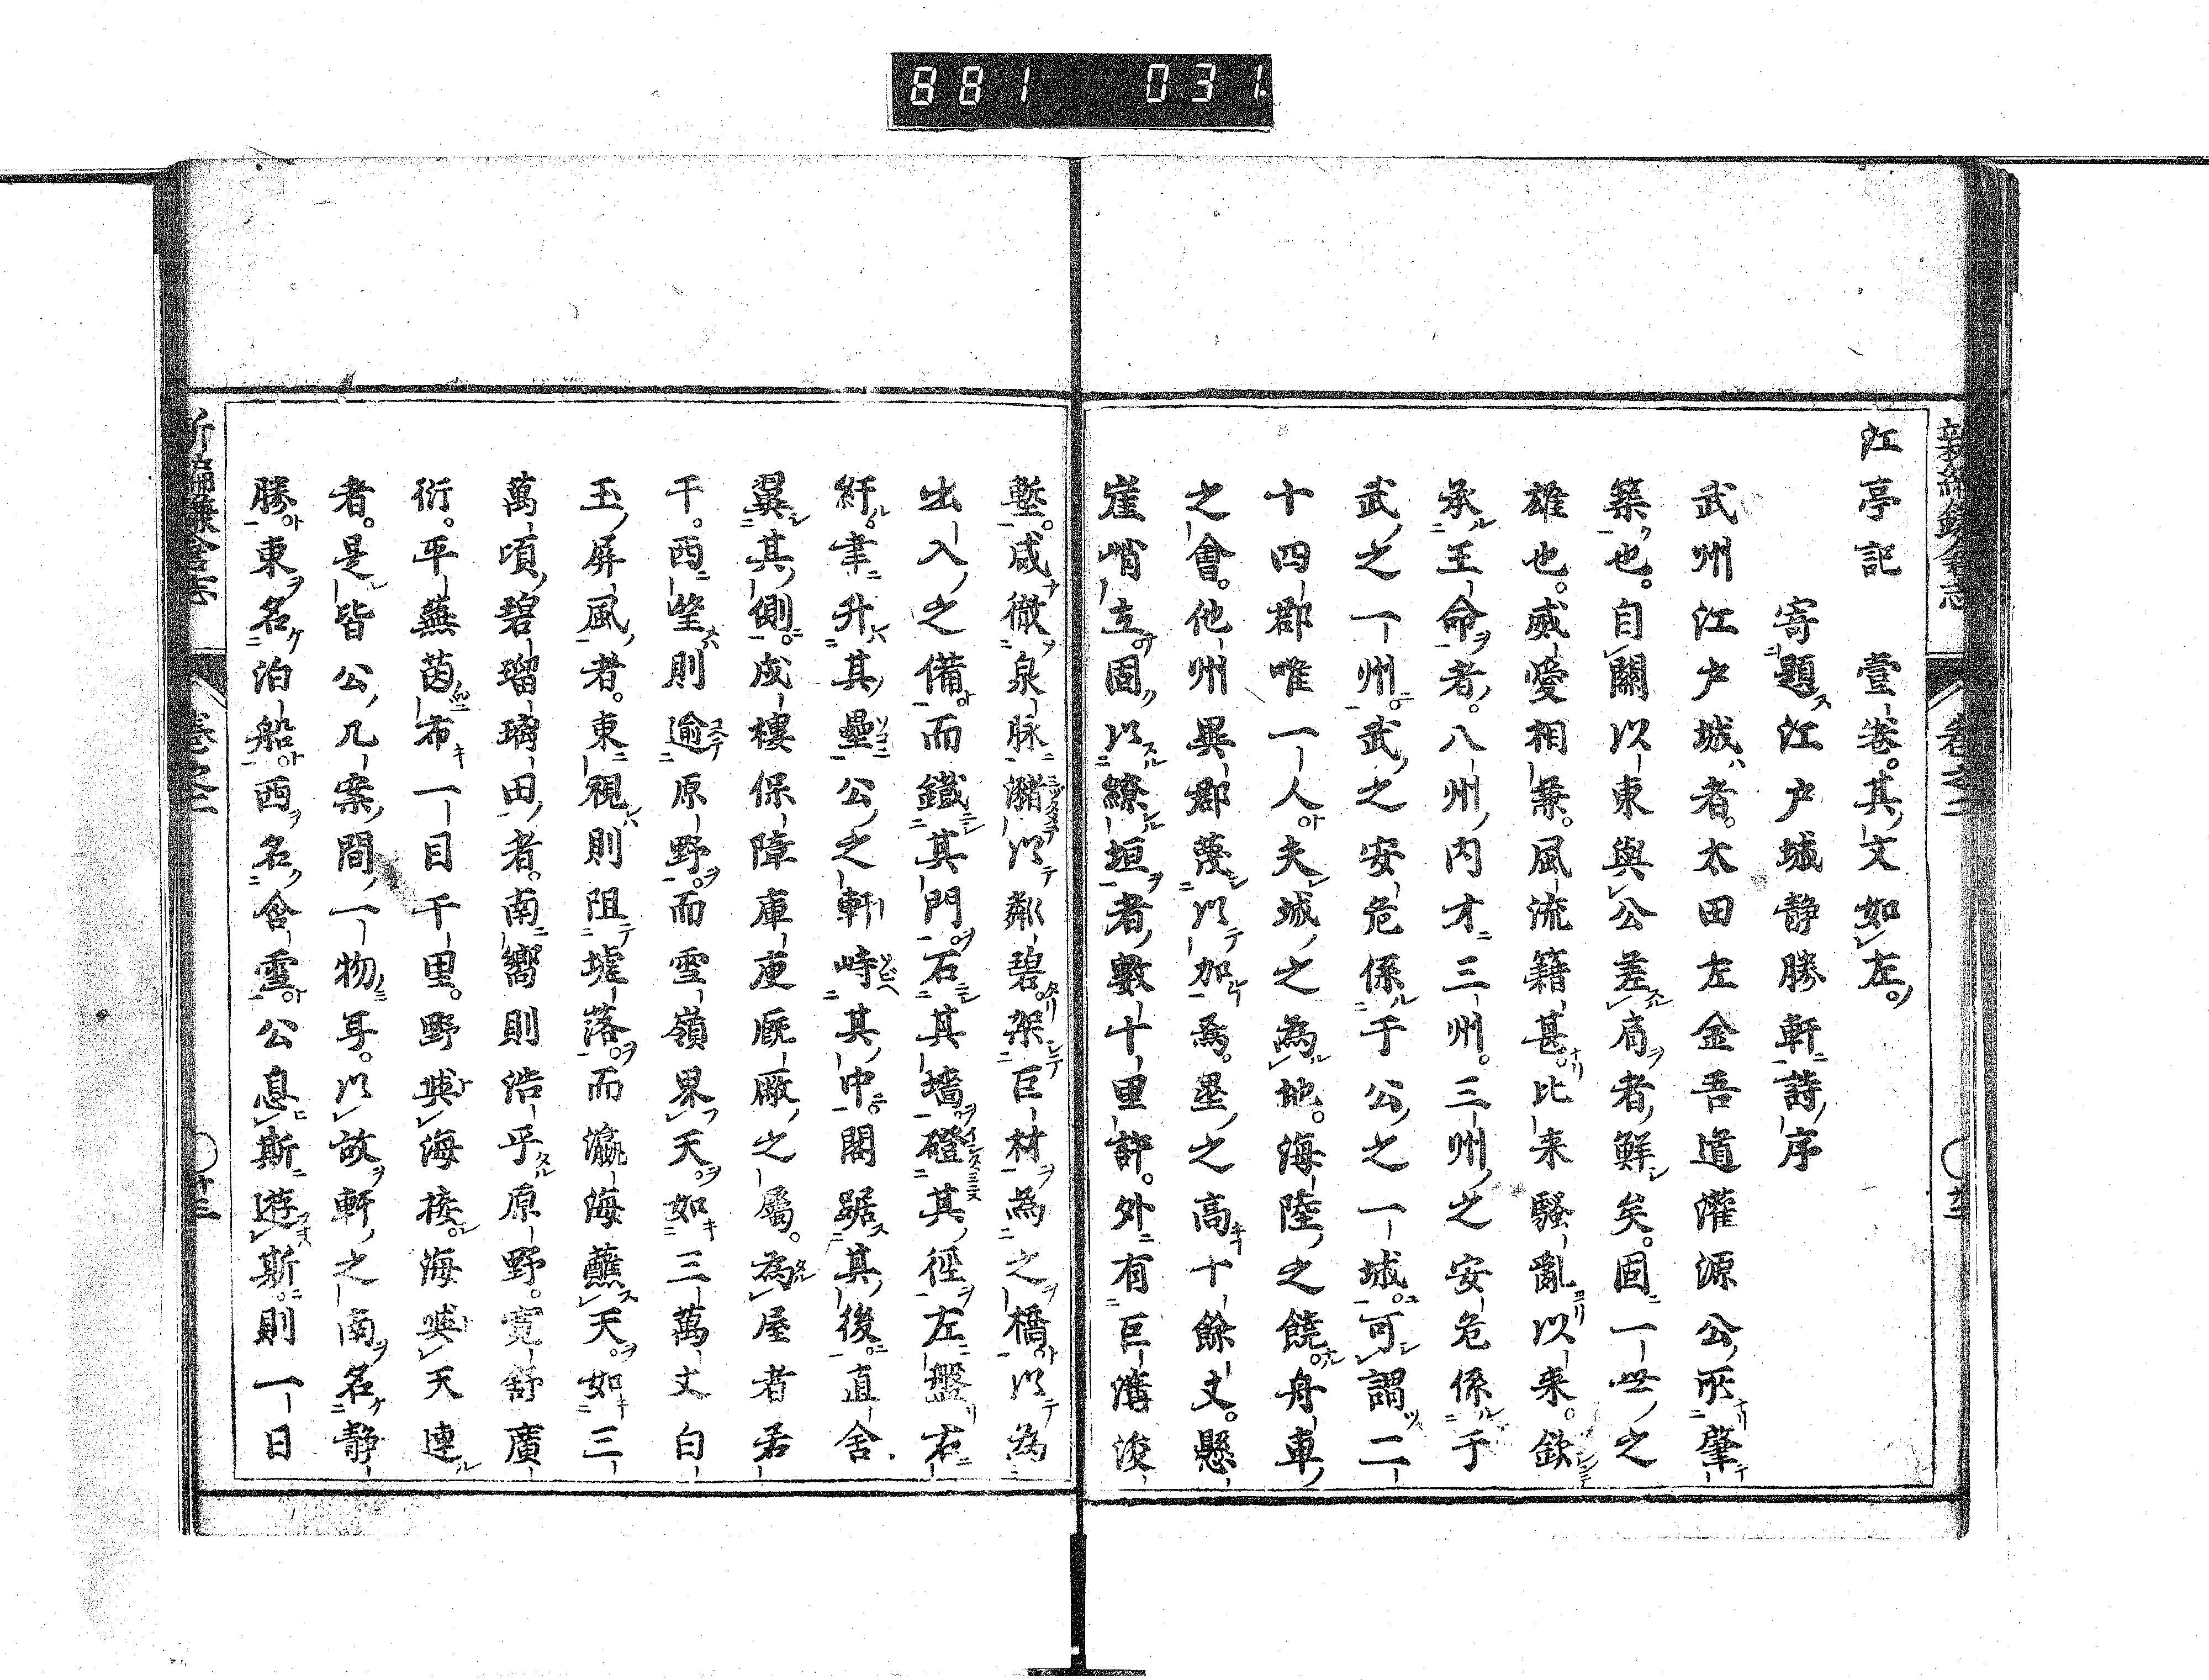 881 031.
江亭記 壹卷。其文如左。
寄題江戶城靜勝軒詩序
武州江戶城者。太田左金吾道灌源公所肇
築也。自關以東與公差肩者鮮矣。固一世之
雄也。威愛相兼。風流籍甚。比来騷亂以来。欽
承王命者。八州內才三州。三州之安危係于
武之一州。武之安危係于公之一城。可謂二
十四郡唯一人。夫城之為地。海陸之饒。舟車
之會。他州異郡蔑以加為。壘之高十餘丈。懸
崖峭立固以繚垣者數十里許。外有巨溝浚
塹。咸徹泉脉瀦以粼碧。架巨材為之橋。以為
出入之備。而鐵其門。石其墻。磴其徑。左盤右
紆。聿升其壘。公之軒峙其中。閣踞其後。直舍
翼其側。戍樓保障庫庾廐廠之屬。為屋者若
干。西望則逾原野。而雪嶺界天。如三萬丈白
玉屏風者。東視則阻墟落。而瀛海蘸天。如三
萬頃碧瑠璃田者。南嚮則浩乎原野。寬舒廣
衍。平蕪茵布一目千里。野與海接。海與天連
者。是皆公几案間一物耳。以故軒之南名靜
勝。東名泊船。西名含雪。公息斯遊斯。則一日
卷之二